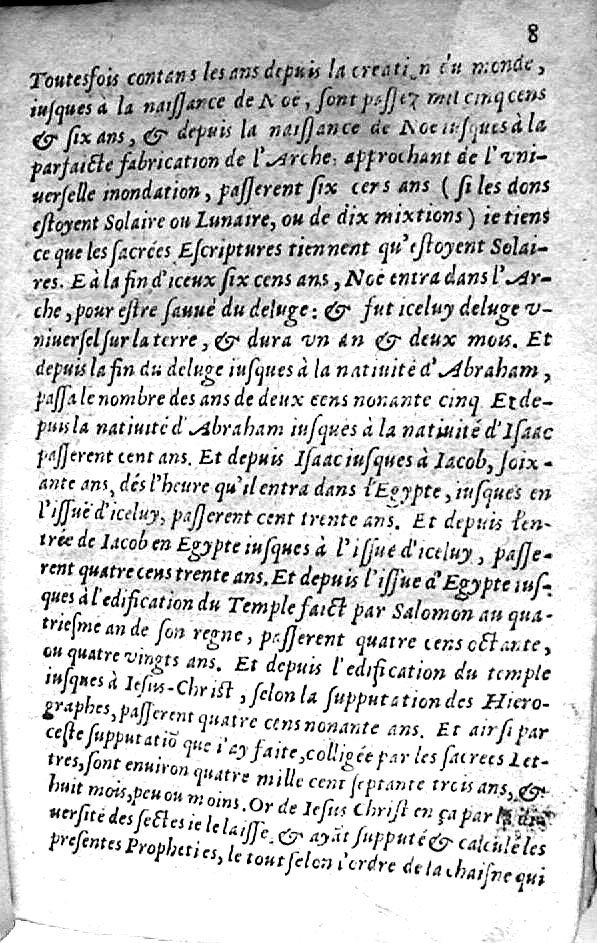 8
Toutesfois contans les ans depuis la creation du monde,
iusques à la naissance de Noé, sont passez mil cinq cens
& six ans, & depuis la naissance de Noe iusques à la
parfaicte fabrication de l'Arche, approchant de l'vni-
uerselle inondation, passerent six cens ans (si les dons
estoyent Solaire ou Lunaire, ou de dix mixtions) ie tiens
ce que les sacrées Escriptures tiennent qu'estoyent Solai-
res. E à la fin d'iceux six cens ans, Noé entra dans l'Ar-
che, pour estre sauué du deluge: & fut iceluy deluge v-
niuersel sur la terre, & dura vn an & deux mois. Et
depuis la fin du deluge iusques à la natiuité d'Abraham,
passa le nombre des ans de deux cens nonante cinq. Et de-
puis la natiuité d'Abraham iusques à la natiuité d'Isaac
passerent cent ans. Et depuis Isaac iusques à Iacob, soix-
ante ans, dés l'heure qu'il entra dans l'Egypte, iusques en
l'issuë d'iceluy, passerent cent trente ans. Et depuis l'en-
trée de Iacob en Egypte iusques à l'issue d'iceluy, passe-
rent quatre cens trente ans. Et depuis l'issue d'Egypte ius-
ques à l'edification du Temple faict par Salomon au qua-
triesme an de son regne, passerent quatre cens octante,
ou quatre vingts ans. Et depuis l'edification du temple
iusques à Iesus-Christ, selon la supputation des Hiero-
graphes, passerent quatre cens nonante ans. Et ainsi par
ceste supputatiō que i'ay faite, colligée par les sacrees Let-
tres, sont enuiron quatre mille cent septante trois ans, &
huit mois, peu ou moins. Or de Iesus Christ en ça par la diu
uersité des sectes ie le laisse, & ayāt supputé & calculé les
presentes Propheties, le tout selon l'ordre de la chaisne qui